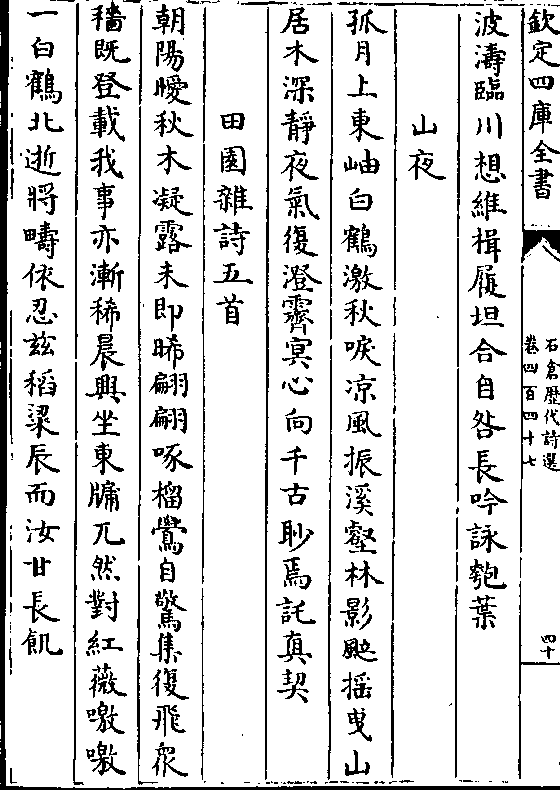 欽定四庫全書
石倉歴代詩選
卷四百四十七
四十
波濤臨川想維楫履坦合自咎長吟詠匏葉
山夜
孤月上東岫白鶴激秋唳凉風振溪壑林影颭摇曵山
居木深靜夜氣復澄霽㝠心向千古眇焉託真契
田園雜詩五首
朝陽曖秋木凝露未即晞翩翩啄榴鶯自驚集復飛衆
穡既登載我事亦漸稀晨興坐東牖兀然對紅薇嗷嗷
一白鶴北逝將疇依忍兹稻粱辰而汝甘長飢